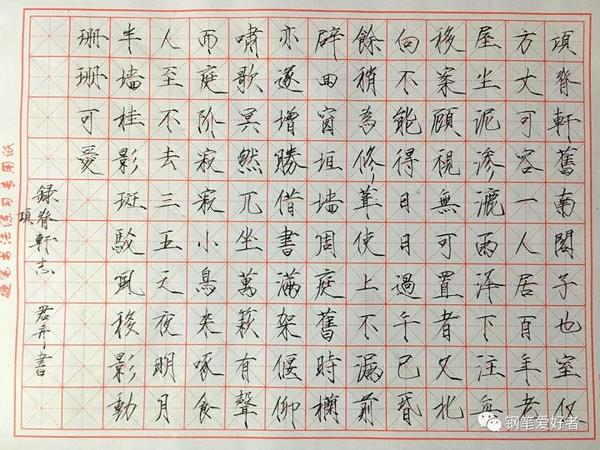 項脊軒舊南閣子也室仅
方丈可容一人居百年老
屋尘泥渗漉雨泽下注每
移案顧視無可置者又北
向不能得日日過午已昏
餘稍為修葺使上不漏前
辟四窗垣墙周庭舊時欄
亦遂增勝借書滿架偃仰
嘯歌冥然兀坐萬籁有聲
而庭阶寂寂小鳥来啄食
人至不去三五之夜明月
半墙桂影斑駁風移影動
珊珊可愛
録脊軒志
項
君 書
硬笔书法练习专用纸
钢笔爱好者